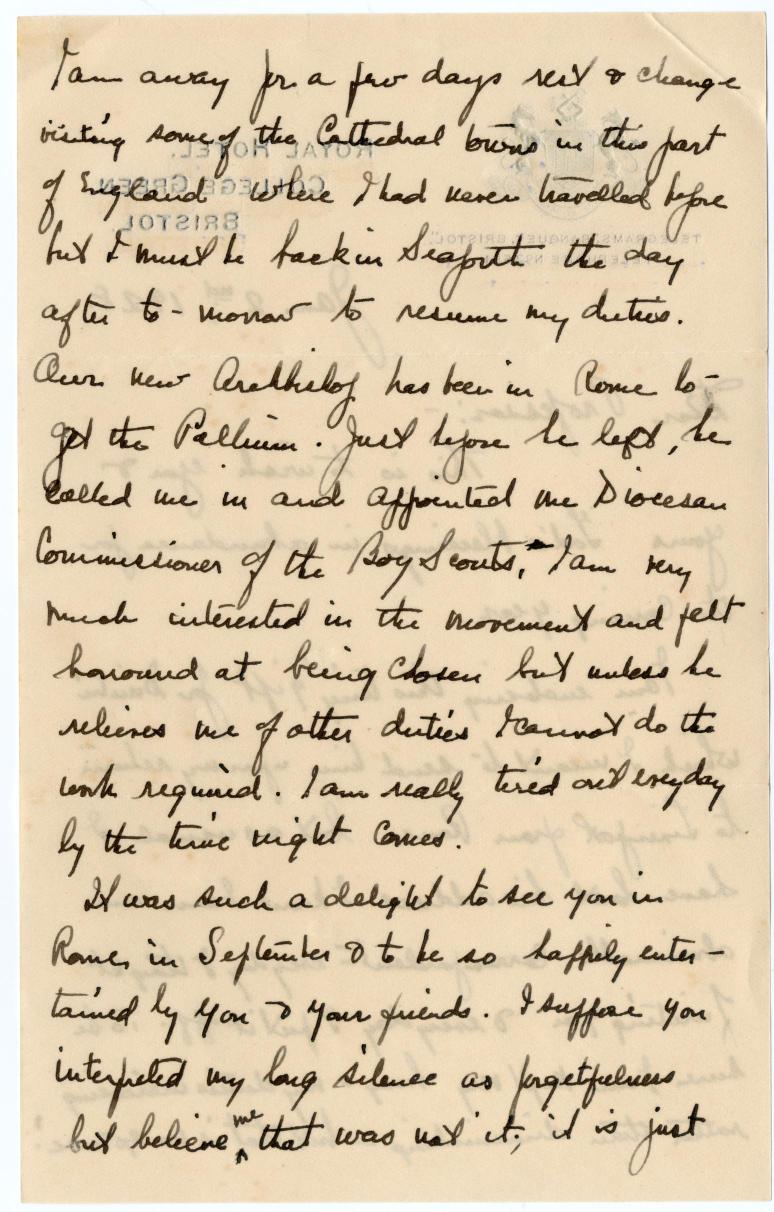 I am away for a few days rest & change
visiting some of the Cathedral towns in this part
of England where I had never travelled before
but I must be back in Seaforth the day
after to-morrow to resume my duties.
Our new Archbishop has been in Rome to
get the Pallium. Just before he left, he
called me in and appointed me Diocesan
Commissioner of the Boy Scouts, I am very
much interested in the movement and felt
honoured at being chosen but unless he
relieves me of other duties I cannot do the
work required. I am really tired out everyday
by the time night comes.
It was such a delight to see you in
Rome in September & to be so happily enter-
tained by you & your friends. I suppose you
interpreted my long silence as forgetfulness
but believe me that was not it; it is just
ROYAL HOTEL.
COLLEGE GREEN
BRISTOL